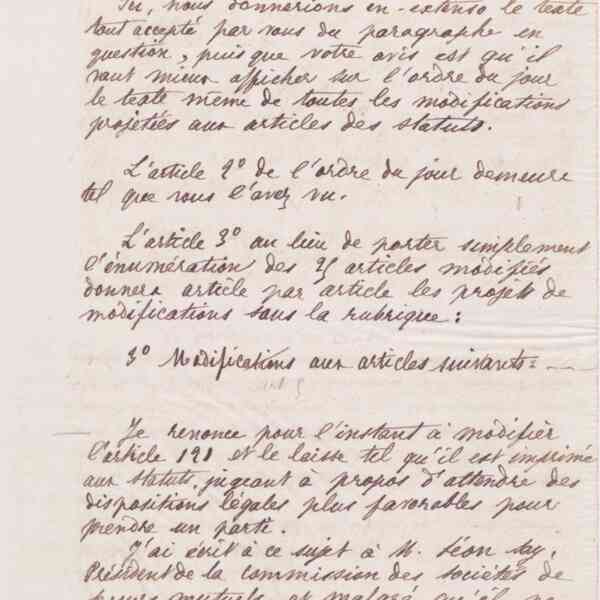 Ici, nous donnerions in-extenso le texte
tout accepté par vous du paragraphe en
question, puisque votre avis est qu'il
vaut mieux afficher sur l'ordre du jour
le texte même de toutes les modifications
projetées aux articles des statuts.
L'article 2° de l'ordre du jour demeure
tel que vous l'avez vu.
L'article 3° au lieu de porter simplement
l'énumération des 25 articles modifiés
donnera article par article les projets de
modifications sous la rubrique :
3° Modifications aux articles suivants :
Je renonce pour l'instant à modifier
l'article 121 et le laisse tel qu'il est imprimé
aux statuts, jugeant à propos d'attendre des
dispositions légales plus favorables pour
prendre un parti.
J'ai écrit à ce sujet à M. Léon Say,
Président de la commission des sociétés de
secours mutuels, et malgré qu'il ne